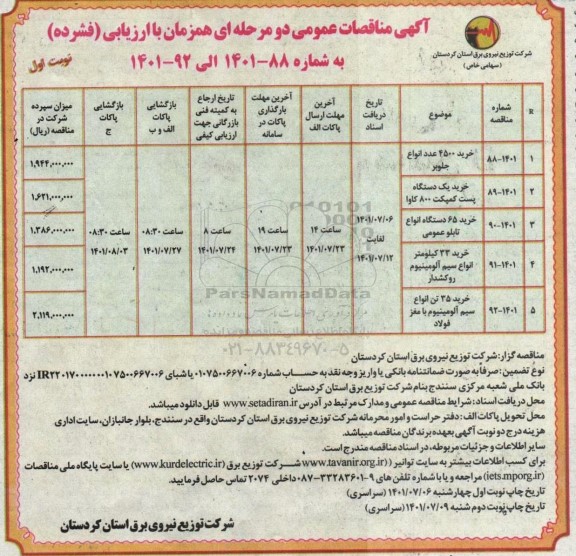 آگهی مناقصات عمومی دو مرحله ای همزمان با ارزیابی (فشرده)
به شماره ۸۸-۱۴۰۱ الی ۹۲-۱۴۰۱
نوبت اول
شرکت توزیع نیروی برق استان کردستان
(سهامی خاص)
R شماره مناقصه موضوع تاریخ دریافت اسناد آخرین مهلت ارسال پاکات الف آخرین مهلت بارگذاری پاکات در سامانه تاریخ ارجاع به کمیته فنی بازرگانی جهت ارزیابی کیفی بازگشایی پاکات الف و ب بازگشایی پاکات ج میزان سپرده شرکت در مناقصه (ریال)
۱ ۸۸-۱۴۰۱ خرید ۴۵۰۰ عدد انواع جلوبر ۱,۹۴۴,۰۰۰,۰۰۰
۲ ۸۹-۱۴۰۱ خرید یک دستگاه پست کمپکت ۸۰۰ کاوا ۱,۶۲۱,۰۰۰,۰۰۰
۳ ۹۰-۱۴۰۱ خرید ۶۵ دستگاه انواع تابلو عمومی ۱,۳۸۶,۰۰۰,۰۰۰
۴ ۹۱-۱۴۰۱ خرید ۳۳ کیلومتر انواع سیم آلومینیوم روکشدار ۱,۱۹۲,۰۰۰,۰۰۰
۵ ۹۲-۱۴۰۱ خرید ۳۵ تن انواع سیم آلومینیوم با مغز فولاد ۲,۱۱۹,۰۰۰,۰۰۰
۱۴۰۱/۰۷/۰۶ لغایت ۱۴۰۱/۰۷/۱۲
ساعت ۱۴ ۱۴۰۱/۰۷/۲۳
ساعت ۱۹ ۱۴۰۱/۰۷/۲۳
ساعت ۸ ۱۴۰۱/۰۷/۲۴
ساعت ۰۸:۳۰ ۱۴۰۱/۰۷/۲۷
ساعت ۰۸:۳۰ ۱۴۰۱/۰۸/۰۳
ParsNamadData
۰۲۱-۸۸۳۴۹۶۷۰-۵
مناقصه گزار: شرکت توزیع نیروی برق استان کردستان
نوع تضمین: صرفاً به صورت ضمانتنامه بانکی یا واریز وجه نقد به حساب شماره ۰۱۰۷۵۰۰۶۶۷۰۰۶ یا شبای IR۲۲۰۱۷۰۰۰۰۰۰۰۱۰۷۵۰۰۶۶۷۰۰۶ نزد
بانک ملی شعبه مرکزی سنندج بنام شرکت توزیع برق استان کردستان
محل دریافت اسناد: شرایط مناقصه عمومی و مدارک مرتبط در آدرس www.setadiran.ir قابل دانلود میباشد.
محل تحویل پاکات الف: دفتر حراست و امور محرمانه شرکت توزیع نیروی برق استان کردستان واقع در سنندج، بلوار جانبازان، سایت اداری
هزینه درج دو نوبت آگهی بعهده برندگان مناقصه میباشد.
سایر اطلاعات و جزئیات مربوطه، در اسناد مناقصه مندرج است.
برای کسب اطلاعات بیشتر به سایت توانیر (www.tavanir.org.ir) شرکت توزیع برق (www.kurdelectric.ir) یا سایت پایگاه ملی مناقصات
(iets.mporg.ir) مراجعه و یا با شماره تلفن های ۹-۰۸۷-۳۳۲۸۳۶۰۱ داخلی ۲۰۷۴ تماس حاصل فرمایید.
تاریخ چاپ نوبت اول چهارشنبه ۱۴۰۱/۰۷/۰۶ (سراسری)
تاریخ چاپ نوبت دوم شنبه ۱۴۰۱/۰۷/۰۹ (سراسری)
شرکت توزیع نیروی برق استان کردستان